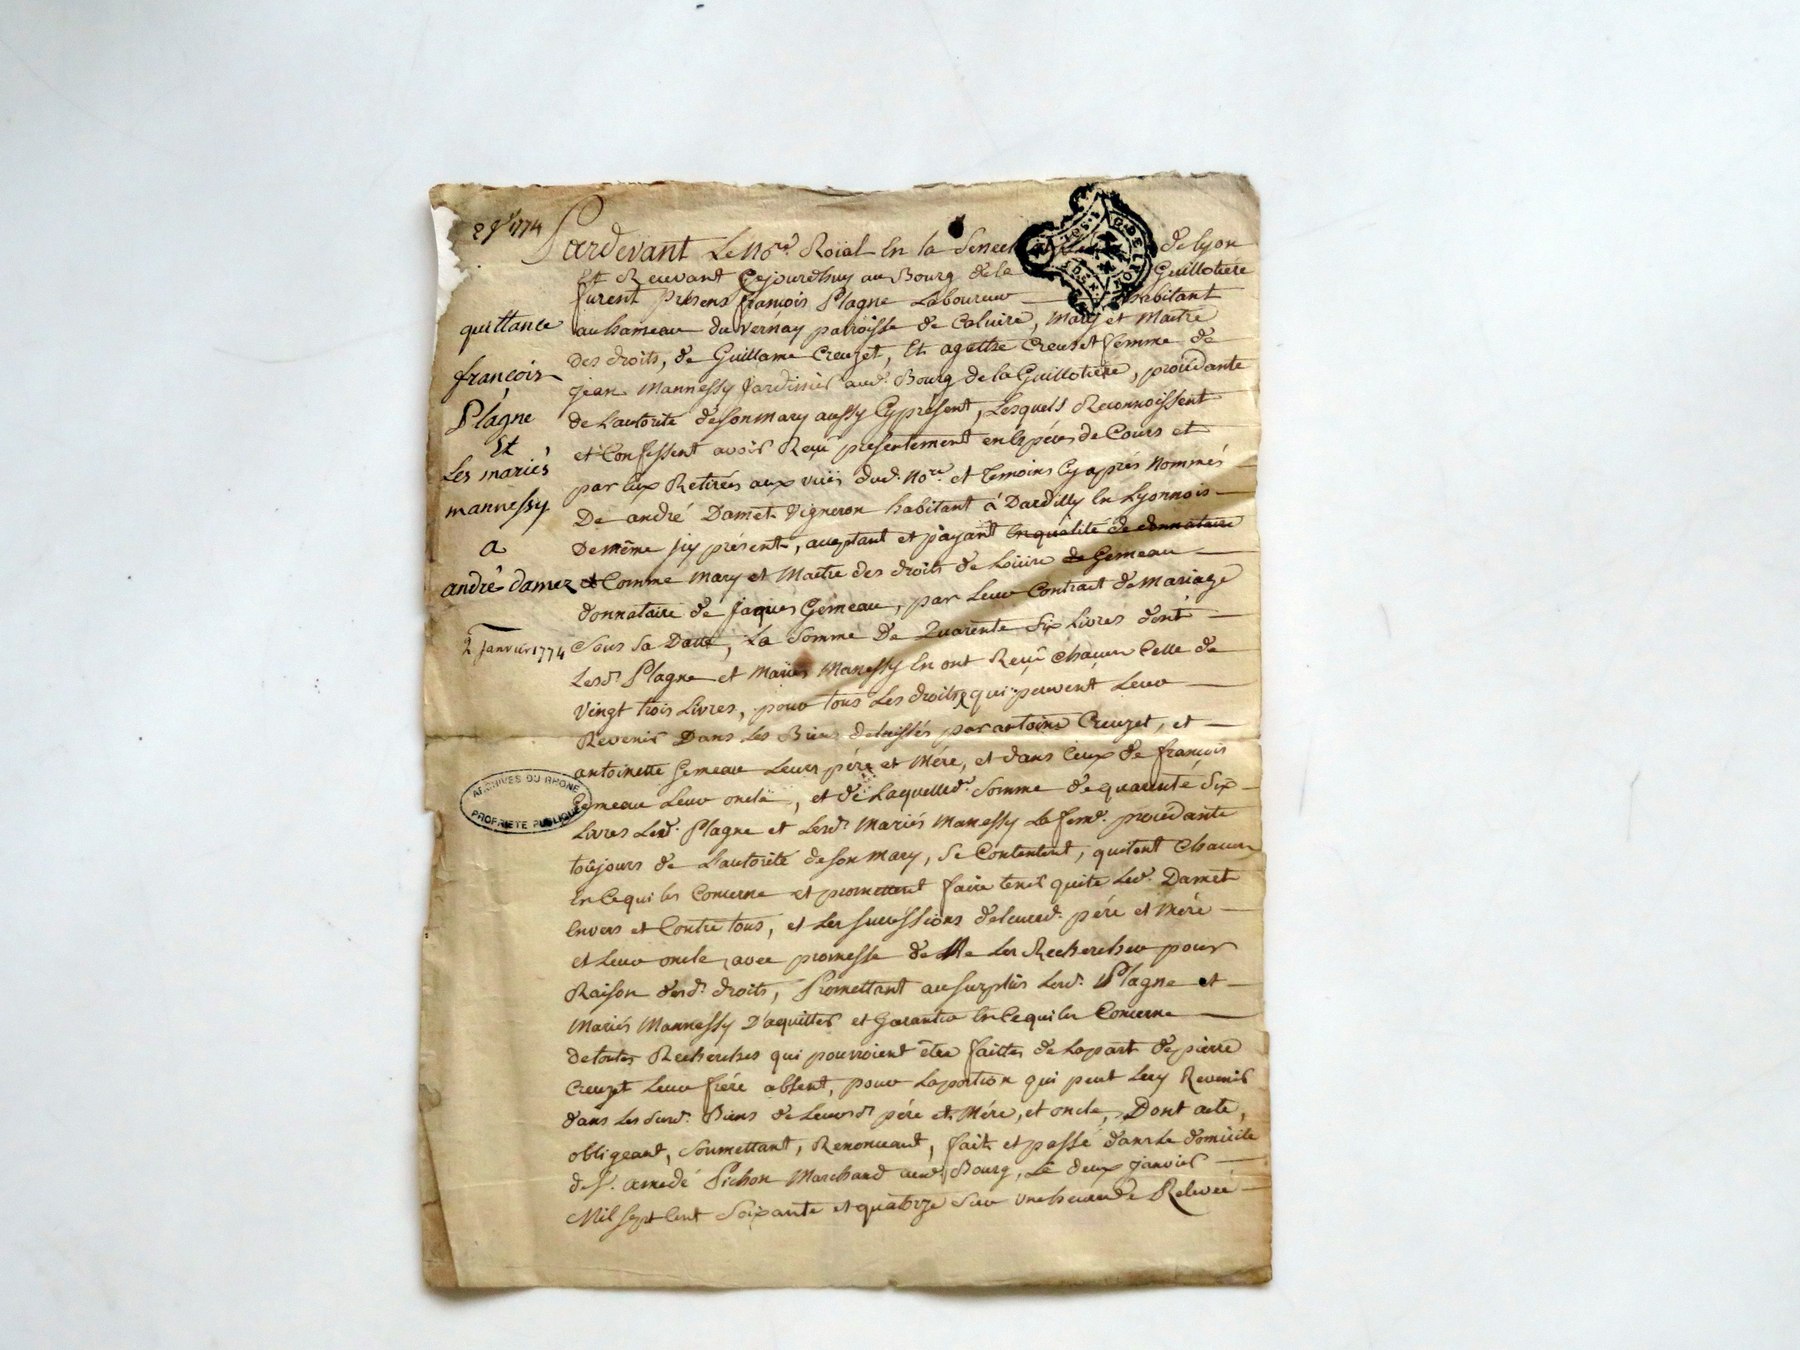 1774
Pardevant Le No.re Roïal En la Senec de lyon
Et Recevant Cejourdhuy au Bourg de la Guillotiére
furent présens françois Plagne Laboureur habitant
quittance
au hameau du Vernay paroisse de Caluire, Mary et Maitre
des droits, de Guillame Creuzet, Et agathe Creuzet femme de
françois
jean Mannessy Jardinier aud. Bourg de la Guillotiére, procédante
Plagne
de L'autorité de son mary aussy Cy présent, Lesquels Reconnoissent
Et
et Confessent avoir Reçu présentement en Espéces de Cours et
Les mariés
par Eux Retirées aux vües dud. No.re et temoins Cy aprés Nommés
mannessy
De andré Damet Vigneron habitant à Dardilly En Lyonnois
a
De même icy présent, acceptant et payant En qualité de donnataire
andré damez
et Comme Mary et Maitre des droits de Loüise de Gemeau
donnataire de Jaques Gemeau, par Leur Contract de Mariage
2 Janvier 1774
Sous Sa Datte, La Somme de Quarente Six Livres dont
Lesd. Plagne et Mariés Manessy En ont Reçu Chacun Celle de
Vingt trois Livres, pour tous Les droits qui peuvent Leur
Revenir Dans Les Biens delaissés par antoine Creuzet, et
antoinette Gemeau Leurs pére et Mére, et dans Ceux de françois
Gemeau Leur oncle, et de Laquelled. Somme de quarente Six
ARCHIVES DU RHONE
PROPRIETE PUBLIQUE
Livres Led. Plagne et Lesd. Mariés Manessy La fem.e procédante
toûjours de L'autorité de son mary, Se Contentent, quitent Chacun
En Ce qui les Concerne et promettent faire tenir quite Led. Damet
Envers et Contre tous, et Les Successions de leursd. pére et Mére
et Leur oncle, avec promesse de Ne Les Rechercher pour
Raison desd. droits, Promettant au Surplus Lesd. Plagne et
Mariés Mannessy D'aquitter et Garantir En Ce qui les Concerne
de toutes Recherches qui pourroient être faittes de La part de pierre
Creuzet Leur frére absent, pour La portion qui peut Luy Revenir
dans Les Susd. Biens de Leursd. pére et Mére, et oncle, Dont acte,
obligeant, Soumettant, Renonceant, fait et passé dans Le domicile
de S. amedé Pichon Marchand aud. Bourg, Le deux janvier
Mil Sept Cent Soixante et quatorze Sur Une heure de Relevée